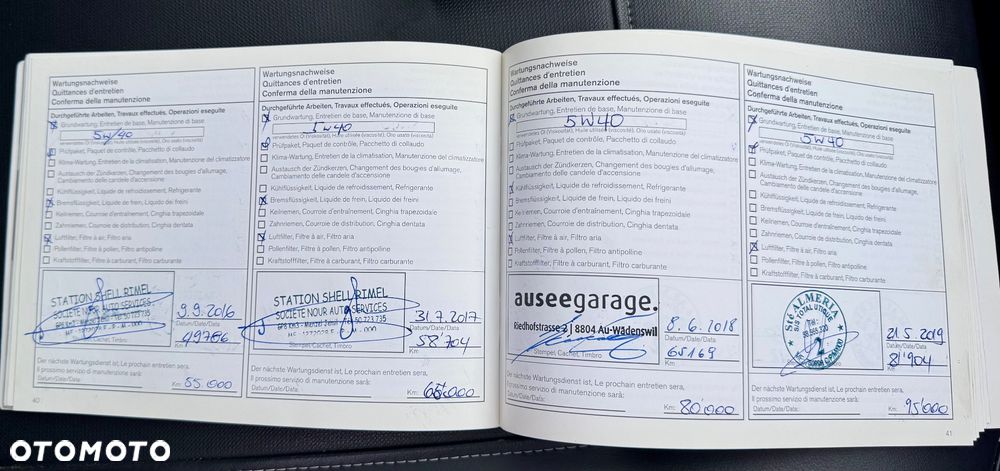 Wartungsnachweise
Quittances d'entretien
Conferma della manutenzione
Durchgeführte Arbeiten, Travaux effectués, Operazioni eseguite
Grundwartung, Entretien de base, Manutenzione di base
5W40
verwendetes Öl (Viskosität), Huile utilisée (viscosité), Olio usato (viscosità)
Prüfpaket, Paquet de contrôle, Pacchetto di collaudo
Klima-Wartung, Entretien de la climatisation, Manutenzione del climatizzatore
Austausch der Zündkerzen, Changement des bougies d'allumage,
Cambiamento delle candele d'accensione
Kühlflüssigkeit, Liquide de refroidissement, Refrigerante
Bremsflüssigkeit, Liquide de frein, Liquido dei freini
Keilriemen, Courroie d'entraînement, Cinghia trapezoidale
Zahnriemen, Courroie de distribution, Cinghia dentata
Luftfilter, Filtre à air, Filtro aria
Pollenfilter, Filtre à pollen, Filtro antipolline
Kraftstofffilter, Filtre à carburant, Filtro carburante
STATION SHELL RIMEL
SOCIETE NOUR AUTO SERVICES
9.9.2016
Datum/Date/Data:
49766
Km:
Stempel, Cachet, Timbro
Der nächste Wartungsdienst ist, Le prochain entretien sera,
Il prossimo servizio di manutenzione sarà:
Datum/Date/Data:
Km: 65'000
40
Wartungsnachweise
Quittances d'entretien
Conferma della manutenzione
Durchgeführte Arbeiten, Travaux effectués, Operazioni eseguite
Grundwartung, Entretien de base, Manutenzione di base
5W40
verwendetes Öl (Viskosität), Huile utilisée (viscosité), Olio usato (viscosità)
Prüfpaket, Paquet de contrôle, Pacchetto di collaudo
Klima-Wartung, Entretien de la climatisation, Manutenzione del climatizzatore
Austausch der Zündkerzen, Changement des bougies d'allumage,
Cambiamento delle candele d'accensione
Kühlflüssigkeit, Liquide de refroidissement, Refrigerante
Bremsflüssigkeit, Liquide de frein, Liquido dei freini
Keilriemen, Courroie d'entraînement, Cinghia trapezoidale
Zahnriemen, Courroie de distribution, Cinghia dentata
Luftfilter, Filtre à air, Filtro aria
Pollenfilter, Filtre à pollen, Filtro antipolline
Kraftstofffilter, Filtre à carburant, Filtro carburante
STATION SHELL RIMEL
SOCIETE NOUR AUTO SERVICES
31.7.2017
Datum/Date/Data:
58'704
Km:
Stempel, Cachet, Timbro
Der nächste Wartungsdienst ist, Le prochain entretien sera,
Il prossimo servizio di manutenzione sarà:
Datum/Date/Data:
Km:
Wartungsnachweise
Quittances d'entretien
Conferma della manutenzione
Durchgeführte Arbeiten, Travaux effectués, Operazioni eseguite
Grundwartung, Entretien de base, Manutenzione di base
5W40
verwendetes Öl (Viskosität), Huile utilisée (viscosité), Olio usato (viscosità)
Prüfpaket, Paquet de contrôle, Pacchetto di collaudo
Klima-Wartung, Entretien de la climatisation, Manutenzione del climatizzatore
Austausch der Zündkerzen, Changement des bougies d'allumage,
Cambiamento delle candele d'accensione
Kühlflüssigkeit, Liquide de refroidissement, Refrigerante
Bremsflüssigkeit, Liquide de frein, Liquido dei freini
Keilriemen, Courroie d'entraînement, Cinghia trapezoidale
Zahnriemen, Courroie de distribution, Cinghia dentata
Luftfilter, Filtre à air, Filtro aria
Pollenfilter, Filtre à pollen, Filtro antipolline
Kraftstofffilter, Filtre à carburant, Filtro carburante
auseegarage.
Riedhofstrasse 2 | 8804 Au-Wädenswil
8.6.2018
Datum/Date/Data:
65169
Km:
Stempel, Cachet, Timbro
Der nächste Wartungsdienst ist, Le prochain entretien sera,
Il prossimo servizio di manutenzione sarà:
Datum/Date/Data:
Km: 80'000
Wartungsnachweise
Quittances d'entretien
Conferma della manutenzione
Durchgeführte Arbeiten, Travaux effectués, Operazioni eseguite
Grundwartung, Entretien de base, Manutenzione di base
5W40
verwendetes Öl (Viskosität), Huile utilisée (viscosité), Olio usato (viscosità)
Prüfpaket, Paquet de contrôle, Pacchetto di collaudo
Klima-Wartung, Entretien de la climatisation, Manutenzione del climatizzatore
Austausch der Zündkerzen, Changement des bougies d'allumage,
Cambiamento delle candele d'accensione
Kühlflüssigkeit, Liquide de refroidissement, Refrigerante
Bremsflüssigkeit, Liquide de frein, Liquido dei freini
Keilriemen, Courroie d'entraînement, Cinghia trapezoidale
Zahnriemen, Courroie de distribution, Cinghia dentata
Luftfilter, Filtre à air, Filtro aria
Pollenfilter, Filtre à pollen, Filtro antipolline
Kraftstofffilter, Filtre à carburant, Filtro carburante
Sté ALMERIA
2
21.5.2019
Datum/Date/Data:
81'904
Km:
Stempel, Cachet, Timbro
Der nächste Wartungsdienst ist, Le prochain entretien sera,
Il prossimo servizio di manutenzione sarà:
Datum/Date/Data:
Km: 95'000
41
OTOMOTO